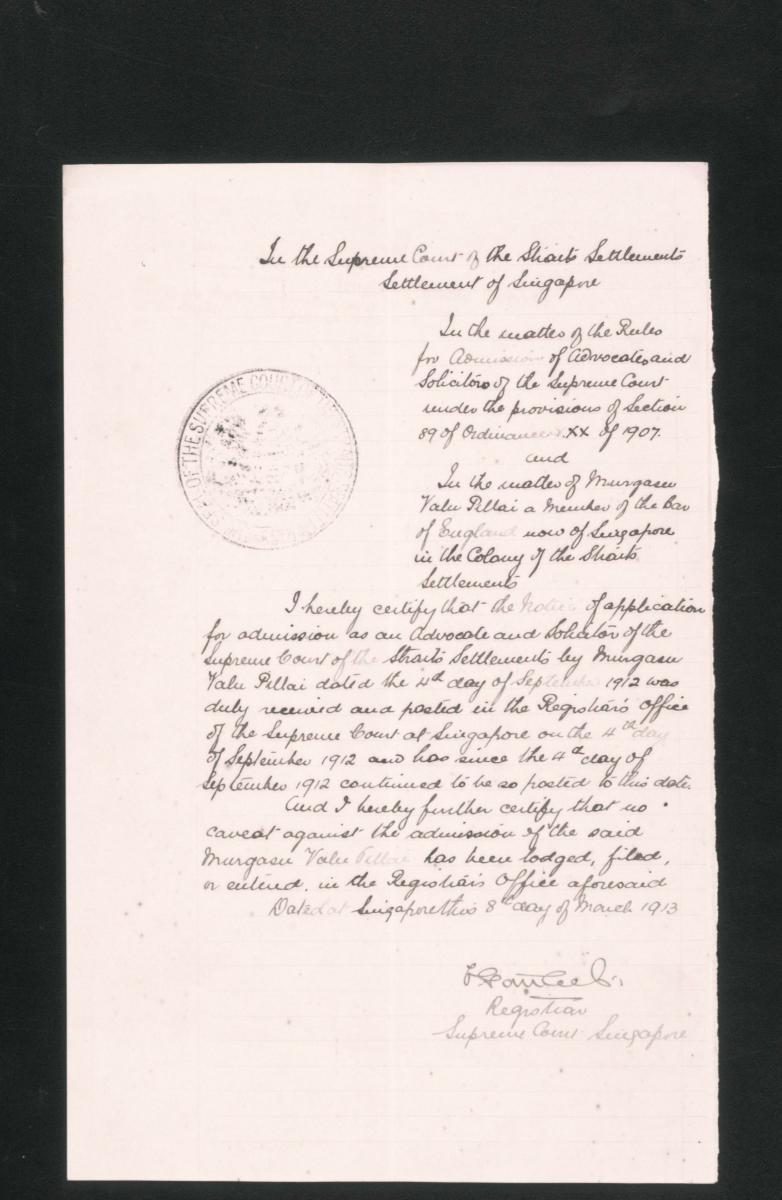 In the Supreme Court of the Straits Settlements
Settlement of Singapore
In the matter of the Rules
for Admission of Advocates and
Solicitors of the Supreme Court
under the provisions of Section
89 of Ordinance XX of 1907.
and
In the matter of Murgasu
Valu Pillai a Member of the Bar
of England now of Singapore
in the Colony of the Straits
Settlements
SEAL OF THE SUPREME COURT OF
I hereby certify that the Notice of application
for admission as an Advocate and Solicitor of the
Supreme Court of the Straits Settlements by Murgasu
Valu Pillai dated the 4th day of September 1912 was
duly received and posted in the Registrar's Office
of the Supreme Court at Singapore on the 4th day
of September 1912 and has since the 4th day of
September 1912 continued to be so posted to this date.
And I hereby further certify that no
caveat against the admission of the said
Murgasu Valu Pillai has been lodged, filed,
or entered. in the Registrar's Office aforesaid
Dated at Singapore this 8th day of March 1913
Registrar
Supreme Court Singapore